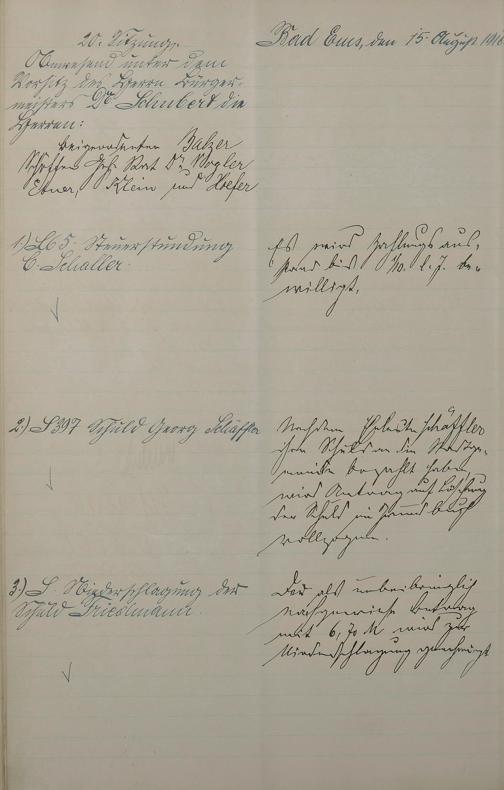 20. Sitzung.
Bad Ems, den 15. August
Anwesend unter dem
Vorsitz des Herrn Bürger-
meisters Dr. Schubert die
Herren:
Beigeordneten Balzer
Schöffen Geh. Rat Dr. Vogler
Ebner, Klein und Hoefer
1.) L 65. Steuerstundung
C. Schaller.
Es wird Zahlungsaus-
stand bis 1/10. l. J. be-
willigt.
2.) S 397 Schuld Georg Schäffler
Nachdem Eheleute Schäffler
ihre Schuld an die Stadtge-
meinde bezahlt haben,
wird Antrag auf Löschung
der Schuld im Grundbuch
vollzogen.
3.) S. Niederschlagung der
Schuld Frieslmann.
Der als unbeibringlich
nachgewiesene Betrag
mit 6,70 M wird zur
Niederschlagung genehmigt